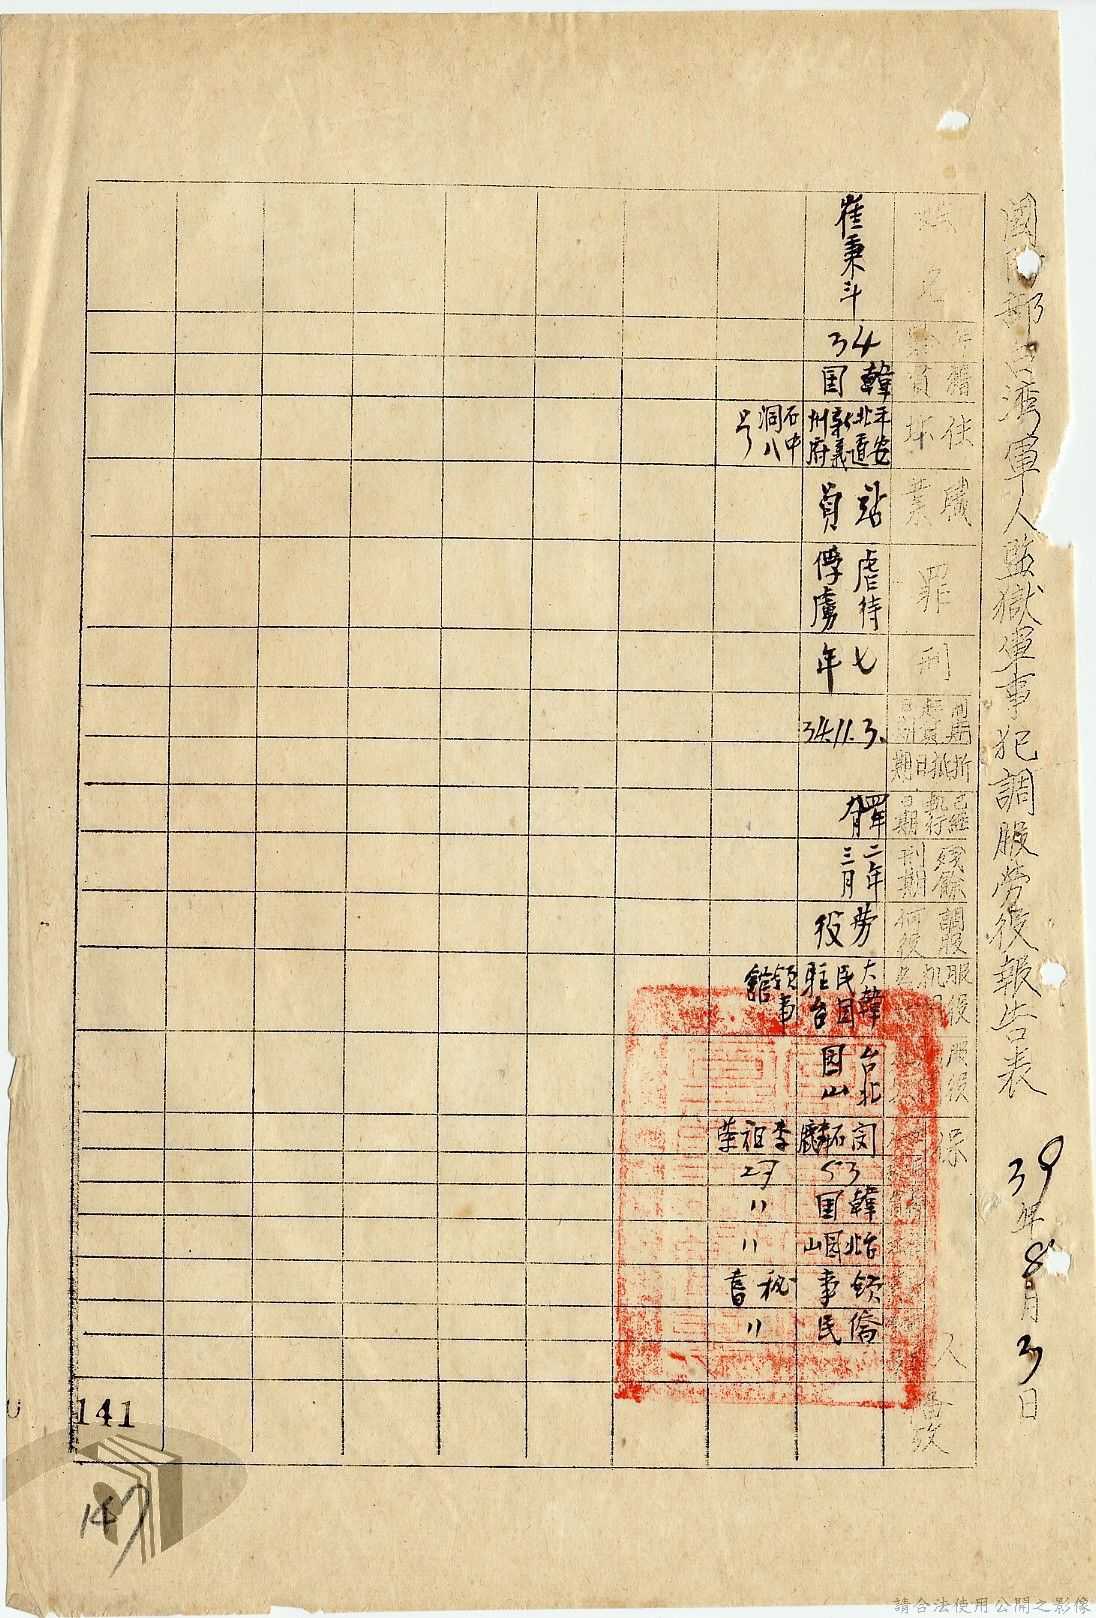 國防部台灣軍人監獄軍事犯調服勞役報告表
39年8月3日
姓名
年齡
籍貫
住址
職業
罪
刑
刑期起算日期
折抵日期
已經執行日期
殘餘刑期
調服何役
服役
保
人
備攷
崔秉斗
34
韓国
平安北道新義州府
石中洞八号
站員
虐待俘虜
七年
34.11.3.
四年八月
二年三月
劳役
大韓民国駐台領事館
台北园山
闵石麟
李祖荣
53
29
韓国
〃
台北园山
〃
領事
秘書
僑民
〃
141
147
請合法使用公開之影像